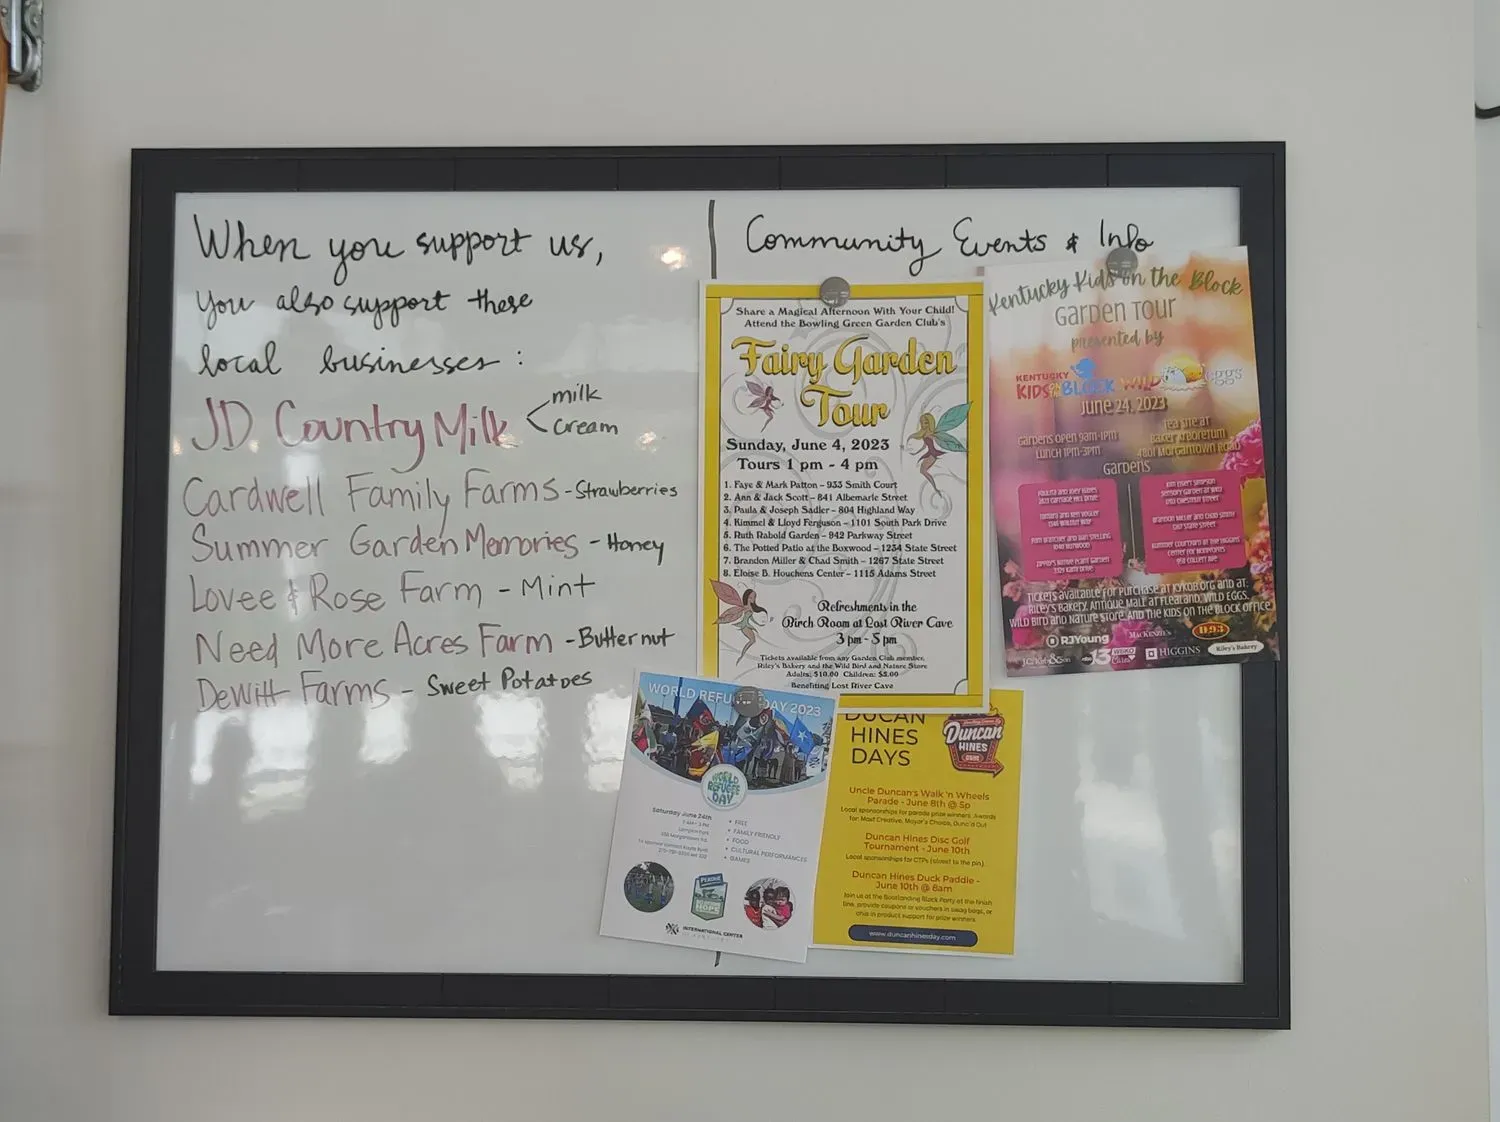 When you support us,
you also support these
local businesses:
JD Country Milk < milk
cream
Cardwell Family Farms - Strawberries
Summer Garden Memories - Honey
Lovee & Rose Farm - Mint
Need More Acres Farm - Butternut
Dewitt Farms - Sweet Potatoes
Community Events & Info
Share a Magical Afternoon With Your Child!
Attend the Bowling Green Garden Club's
Fairy Garden
Tour
Sunday, June 4, 2023
Tours 1 pm - 4 pm
1. Faye & Mark Patton - 933 Smith Court
2. Ann & Jack Scott - 841 Albemarle Street
3. Paula & Joseph Sadler - 804 Highland Way
4. Kimmel & Lloyd Ferguson - 1101 South Park Drive
5. Ruth Rabold Garden - 942 Parkway Street
6. The Potted Patio at the Boxwood - 1234 State Street
7. Brandon Miller & Chad Smith - 1267 State Street
8. Eloise B. Houchens Center - 1115 Adams Street
Refreshments in the
Birch Room at Lost River Cave
3 pm - 5 pm
Tickets available from any Garden Club member,
Riley's Bakery and the Wild Bird and Nature Store
Adults, $10.00 Children: $5.00
Benefiting Lost River Cave
Kentucky Kids on the Block
Garden Tour
presented by
KENTUCKY
KIDS ON THE BLOCK WILD eggs
June 24, 2023
Gardens open 9am-1pm
Lunch 1pm-3pm
Tea Site at
Baker Arboretum
4801 Morgantown Road
Gardens
Brandon Miller and Chad Smith
1267 State Street
Tickets available for purchase at kykob.org and at:
Riley's Bakery, Antique Mall at Flealand, Wild Eggs,
Wild Bird and Nature Store and the Kids on the Block Office
RJYoung
MacKenzie's
D93
13 WBKO
HIGGINS
Riley's Bakery
WORLD REFUGEE DAY 2023
WORLD
REFUGEE
DAY
Saturday June 24th
• FREE
• FAMILY FRIENDLY
• FOOD
• CULTURAL PERFORMANCES
• GAMES
PERDUE
INTERNATIONAL CENTER
OF KENTUCKY
DUCAN
HINES
DAYS
Duncan
HINES
DAYS
Uncle Duncan's Walk 'n Wheels
Parade - June 8th @ 5p
Local sponsorships for parade prize winners. Awards
for: Most Creative, Mayor's Choice, Dunc'd Out
Duncan Hines Disc Golf
Tournament - June 10th
Local sponsorships for CTPs (closest to the pin).
Duncan Hines Duck Paddle -
June 10th @ 8am
Join us at the Bootlanding Block Party at the finish
line, provide coupons or vouchers in swag bags, or
chip in product support for prize winners.
www.duncanhinesday.com